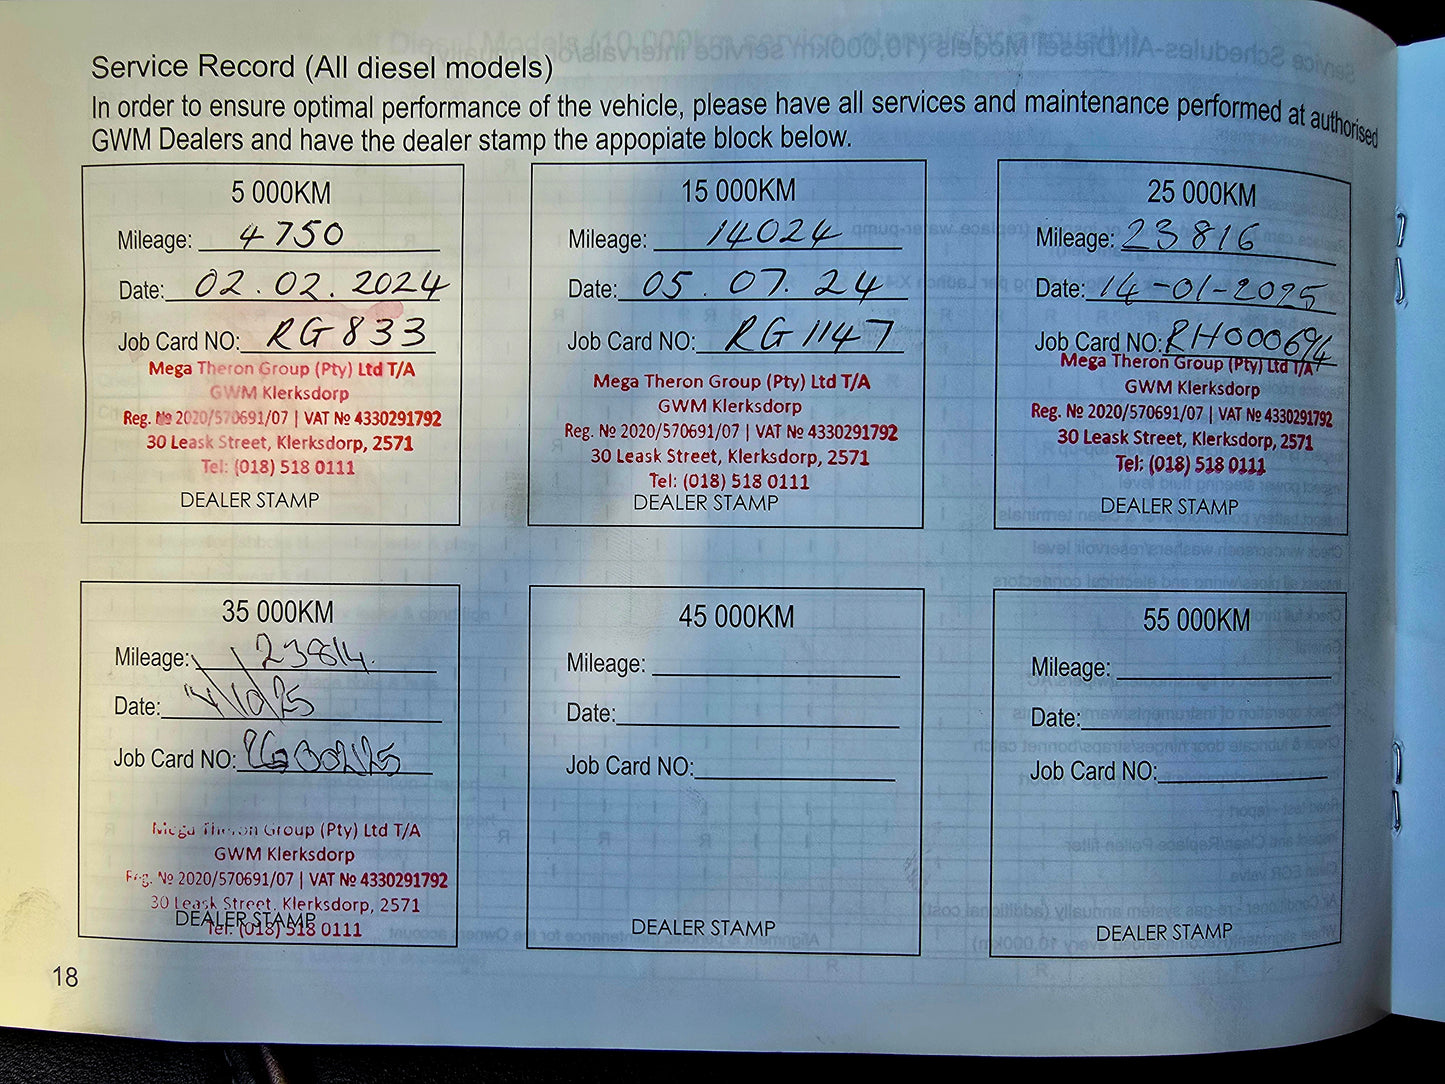 Service Record (All diesel models)
In order to ensure optimal performance of the vehicle, please have all services and maintenance performed at authorised
GWM Dealers and have the dealer stamp the appopiate block below.
5 000KM
Mileage: 4750
Date: 02.02.2024
Job Card NO: RG833
Mega Theron Group (Pty) Ltd T/A
GWM Klerksdorp
Reg. № 2020/570691/07 | VAT № 4330291792
30 Leask Street, Klerksdorp, 2571
Tel: (018) 518 0111
DEALER STAMP
15 000KM
Mileage: 14024
Date: 05.07.24
Job Card NO: RG1147
Mega Theron Group (Pty) Ltd T/A
GWM Klerksdorp
Reg. № 2020/570691/07 | VAT № 4330291792
30 Leask Street, Klerksdorp, 2571
Tel: (018) 518 0111
DEALER STAMP
25 000KM
Mileage: 23816
Date: 14-01-2025
Job Card NO: RH000694
Mega Theron Group (Pty) Ltd T/A
GWM Klerksdorp
Reg. № 2020/570691/07 | VAT № 4330291792
30 Leask Street, Klerksdorp, 2571
Tel: (018) 518 0111
DEALER STAMP
35 000KM
Mileage: 23814
Date: 14/10/25
Job Card NO:
Mega Theron Group (Pty) Ltd T/A
GWM Klerksdorp
Reg. № 2020/570691/07 | VAT № 4330291792
30 Leask Street, Klerksdorp, 2571
DEALER STAMP
Tel: (018) 518 0111
45 000KM
Mileage:
Date:
Job Card NO:
DEALER STAMP
55 000KM
Mileage:
Date:
Job Card NO:
DEALER STAMP
18